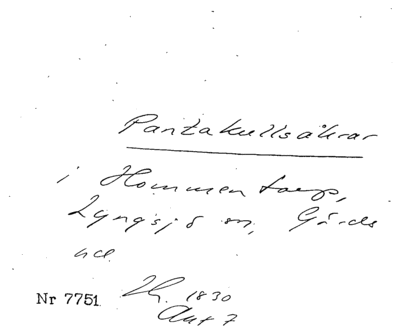 Pantakullsåkrar
i Hommentorp,
Lyngsjö sn, Gärds
hd.
Nr 7751 Lh. 1830
Akt 7